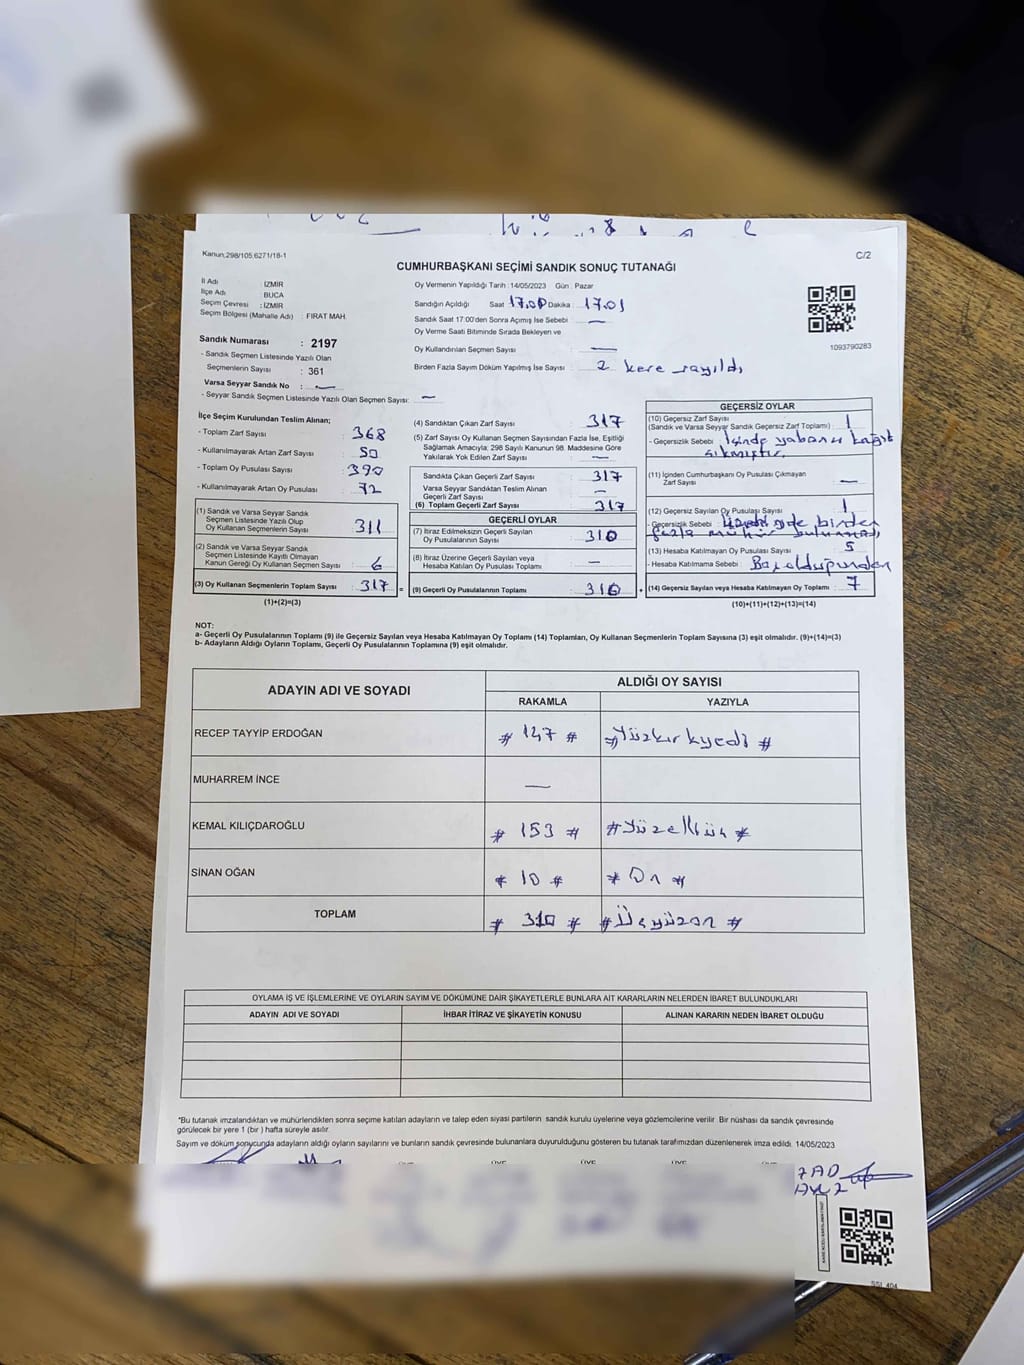 Kanun;298/105,6271/18-1
C/2
CUMHURBAŞKANI SEÇİMİ SANDIK SONUÇ TUTANAĞI
İl Adı : İZMİR
İlçe Adı : BUCA
Seçim Çevresi : İZMİR
Seçim Bölgesi (Mahalle Adı) : FIRAT MAH.
Oy Vermenin Yapıldığı Tarih : 14/05/2023 Gün : Pazar
Sandığın Açıldığı Saat 17.00 Dakika : 17.01
Sandık Saat 17:00'den Sonra Açımış İse Sebebi : —
Oy Verme Saati Bitiminde Sırada Bekleyen ve
Oy Kullandırılan Seçmen Sayısı : —
Birden Fazla Sayım Döküm Yapılmış İse Sayısı : 2 kere sayıldı
1093790283
Sandık Numarası : 2197
- Sandık Seçmen Listesinde Yazılı Olan
Seçmenlerin Sayısı : 361
Varsa Seyyar Sandık No : —
- Seyyar Sandık Seçmen Listesinde Yazılı Olan Seçmen Sayısı: —
İlçe Seçim Kurulundan Teslim Alınan;
- Toplam Zarf Sayısı : 368
- Kullanılmayarak Artan Zarf Sayısı : 50
- Toplam Oy Pusulası Sayısı : 390
- Kullanılmayarak Artan Oy Pusulası : 72
(1) Sandık ve Varsa Seyyar Sandık
Seçmen Listesinde Yazılı Olup
Oy Kullanan Seçmenlerin Sayısı : 311
(2) Sandık ve Varsa Seyyar Sandık
Seçmen Listesinde Kayıtlı Olmayan
Kanun Gereği Oy Kullanan Seçmen Sayısı : 6
(3) Oy Kullanan Seçmenlerin Toplam Sayısı : 317
(1)+(2)=(3)
(4) Sandıktan Çıkan Zarf Sayısı : 317
(5) Zarf Sayısı Oy Kullanan Seçmen Sayısından Fazla İse, Eşitliği
Sağlamak Amacıyla; 298 Sayılı Kanunun 98. Maddesine Göre
Yakılarak Yok Edilen Zarf Sayısı : —
Sandıkta Çıkan Geçerli Zarf Sayısı : 317
Varsa Seyyar Sandıktan Teslim Alınan
Geçerli Zarf Sayısı : —
(6) Toplam Geçerli Zarf Sayısı : 317
GEÇERLİ OYLAR
(7) İtiraz Edilmeksizin Geçerli Sayılan
Oy Pusulalarının Sayısı : 310
(8) İtiraz Üzerine Geçerli Sayılan veya
Hesaba Katılan Oy Pusulası Toplamı : —
= (9) Geçerli Oy Pusulalarının Toplamı : 310 +
GEÇERSİZ OYLAR
(10) Geçersiz Zarf Sayısı
(Sandık ve Varsa Seyyar Sandık Geçersiz Zarf Toplamı) : 1
- Geçersizlik Sebebi : İçinde yabancı kağıt
çıkmıştır.
(11) İçinden Cumhurbaşkanı Oy Pusulası Çıkmayan
Zarf Sayısı : —
(12) Geçersiz Sayılan Oy Pusulası Sayısı : 1
- Geçersizlik Sebebi : birden
fazla mühür bulunması
(13) Hesaba Katılmayan Oy Pusulası Sayısı : 5
- Hesaba Katılmama Sebebi : Boş olduğundan
(14) Geçersiz Sayılan veya Hesaba Katılmayan Oy Toplamı : 7
(10)+(11)+(12)+(13)=(14)
NOT:
a- Geçerli Oy Pusulalarının Toplamı (9) ile Geçersiz Sayılan veya Hesaba Katılmayan Oy Toplamı (14) Toplamları, Oy Kullanan Seçmenlerin Toplam Sayısına (3) eşit olmalıdır. (9)+(14)=(3)
b- Adayların Aldığı Oyların Toplamı, Geçerli Oy Pusulalarının Toplamına (9) eşit olmalıdır.
ADAYIN ADI VE SOYADI
ALDIĞI OY SAYISI
RAKAMLA YAZIYLA
RECEP TAYYİP ERDOĞAN # 147 # # Yüzkırkyedi #
MUHARREM İNCE —
KEMAL KILIÇDAROĞLU # 153 # # Yüzelliüç #
SİNAN OĞAN # 10 # # On #
TOPLAM # 310 # # Üçyüzon #
OYLAMA İŞ VE İŞLEMLERİNE VE OYLARIN SAYIM VE DÖKÜMÜNE DAİR ŞİKAYETLERLE BUNLARA AİT KARARLARIN NELERDEN İBARET BULUNDUKLARI
ADAYIN ADI VE SOYADI İHBAR İTİRAZ VE ŞİKAYETİN KONUSU ALINAN KARARIN NEDEN İBARET OLDUĞU
*Bu tutanak imzalandıktan ve mühürlendikten sonra seçime katılan adayların ve talep eden siyasi partilerin sandık kurulu üyelerine veya gözlemcilerine verilir. Bir nüshası da sandık çevresinde
görülecek bir yere 1 (bir ) hafta süreyle asılır.
Sayım ve döküm sonucunda adayların aldığı oyların sayılarını ve bunların sandık çevresinde bulunanlara duyurulduğunu gösteren bu tutanak tarafımızdan düzenlenerek imza edildi. 14/05/2023